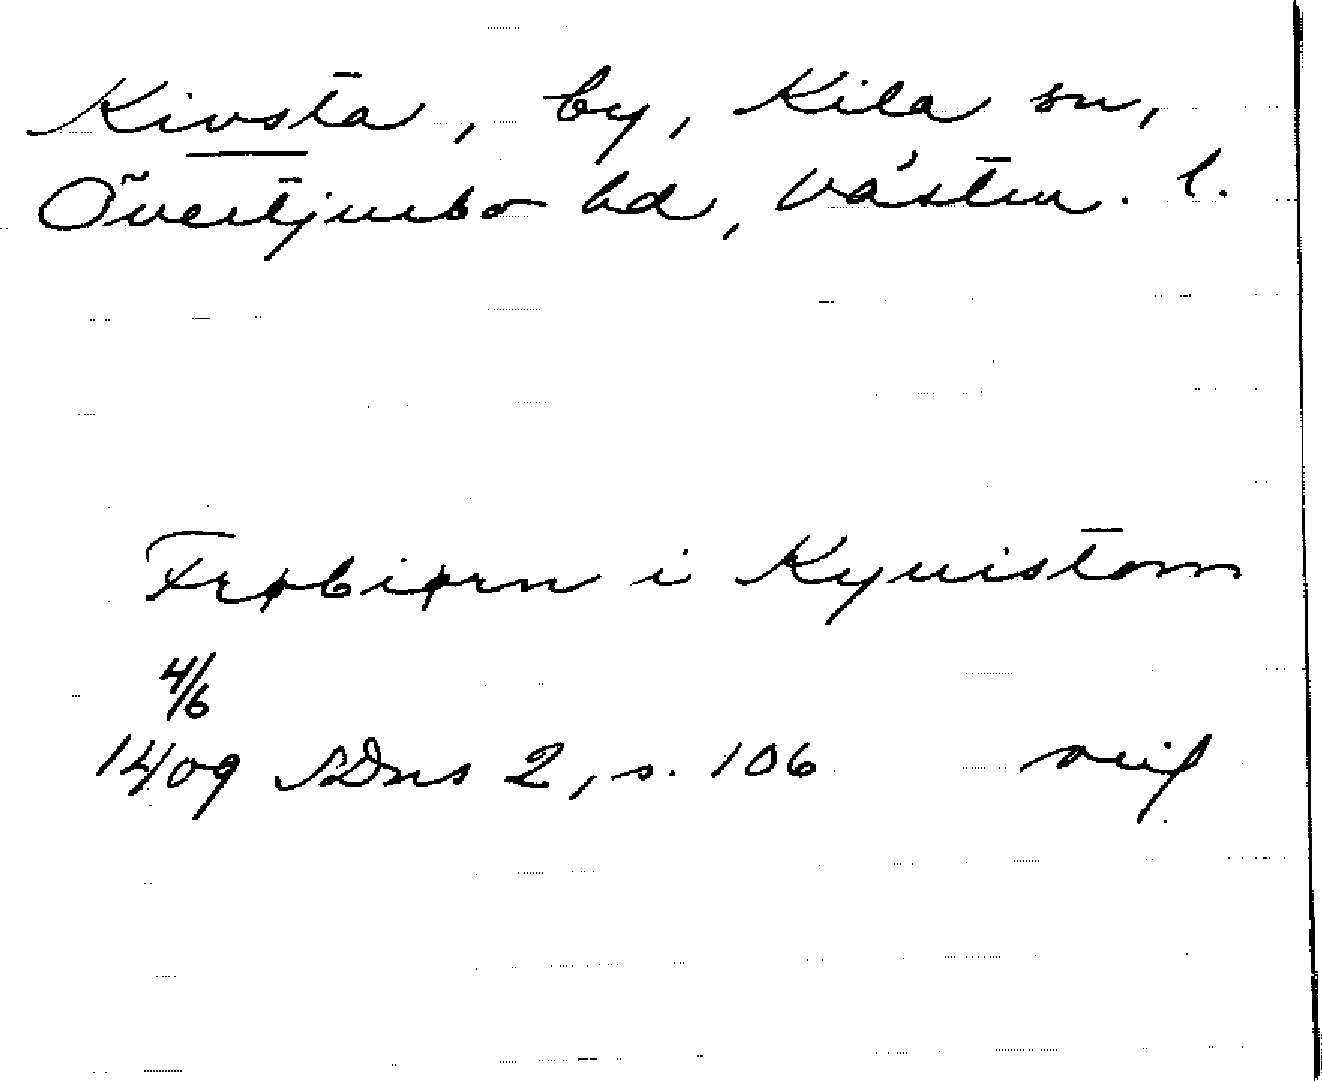 Kivsta, by, Kila sn,
Övertjurbo hd, Västm. l.
Frøbiørn i Kyuistom
4/6
1409 SDns 2, s. 106 orig